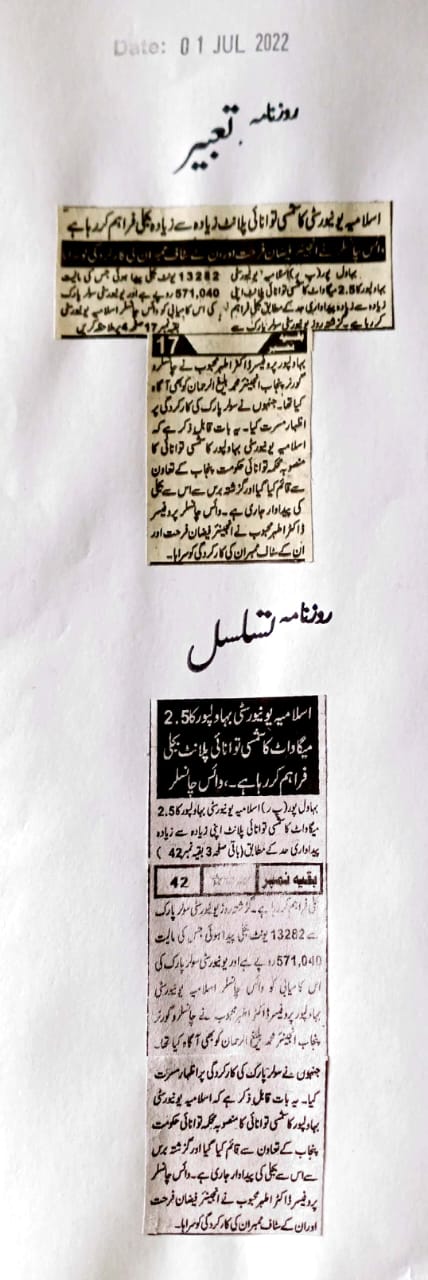 Date: 01 JUL 2022
روزنامہ تعبیر
اسلامیہ یونیورسٹی کا شمسی توانائی پلانٹ زیادہ سے زیادہ بجلی فراہم کر رہا ہے
وائس چانسلر نے انجینئر فیضان فرحت اور ان کے سٹاف ممبران کی کارکردگی کو سراہا
بہاول پور (پ ر) اسلامیہ یونیورسٹی
بہاولپور کا 2.5 میگاواٹ کا شمسی توانائی پلانٹ اپنی
زیادہ سے زیادہ پیداواری حد کے مطابق بجلی فراہم
کر رہا ہے۔ گزشتہ روز یونیورسٹی سولر پارک سے
13282 یونٹ بجلی پیدا ہوئی جس کی مالیت
571,040 روپے ہے اور یونیورسٹی سولر پارک
کی اس کامیابی کو وائس چانسلر اسلامیہ یونیورسٹی
بقیہ نمبر 17 صفحہ 4 پر ملاحظہ کریں
بقیہ نمبر 17
بہاولپور پروفیسر ڈاکٹر اطہر محبوب نے چانسلر و
گورنر پنجاب انجینئر محمد بلیغ الرحمان کو بھی آگاہ
کیا تھا۔ جنہوں نے سولر پارک کی کارکردگی پر
اظہار مسرت کیا۔ یہ بات قابل ذکر ہے کہ
اسلامیہ یونیورسٹی بہاولپور کا شمسی توانائی کا
منصوبہ محکمہ توانائی حکومت پنجاب کے تعاون
سے قائم کیا گیا اور گزشتہ برس سے اس سے بجلی
کی پیداوار جاری ہے۔ وائس چانسلر پروفیسر
ڈاکٹر اطہر محبوب نے انجینئر فیضان فرحت اور
ان کے سٹاف ممبران کی کارکردگی کو سراہا۔
روزنامہ تسلسل
اسلامیہ یونیورسٹی بہاولپور کا 2.5
میگاواٹ کا شمسی توانائی پلانٹ بجلی
فراہم کر رہا ہے۔، وائس چانسلر
بہاول پور (پ ر) اسلامیہ یونیورسٹی بہاولپور کا 2.5
میگاواٹ کا شمسی توانائی پلانٹ اپنی زیادہ سے زیادہ
پیداواری حد کے مطابق (باقی صفحہ 3 بقیہ نمبر 42)
بقیہ نمبر 42
بجلی فراہم کر رہا ہے۔ گزشتہ روز یونیورسٹی سولر پارک
سے 13282 یونٹ بجلی پیدا ہوئی جس کی مالیت
571,040 روپے ہے اور یونیورسٹی سولر پارک کی
اس کامیابی کو وائس چانسلر اسلامیہ یونیورسٹی
بہاولپور پروفیسر ڈاکٹر اطہر محبوب نے چانسلر و گورنر
پنجاب انجینئر محمد بلیغ الرحمان کو بھی آگاہ کیا تھا۔
جنہوں نے سولر پارک کی کارکردگی پر اظہار مسرت
کیا۔ یہ بات قابل ذکر ہے کہ اسلامیہ یونیورسٹی
بہاولپور کا شمسی توانائی کا منصوبہ محکمہ توانائی حکومت
پنجاب کے تعاون سے قائم کیا گیا اور گزشتہ برس
سے اس سے بجلی کی پیداوار جاری ہے۔ وائس چانسلر
پروفیسر ڈاکٹر اطہر محبوب نے انجینئر فیضان فرحت
اور ان کے سٹاف ممبران کی کارکردگی کو سراہا۔